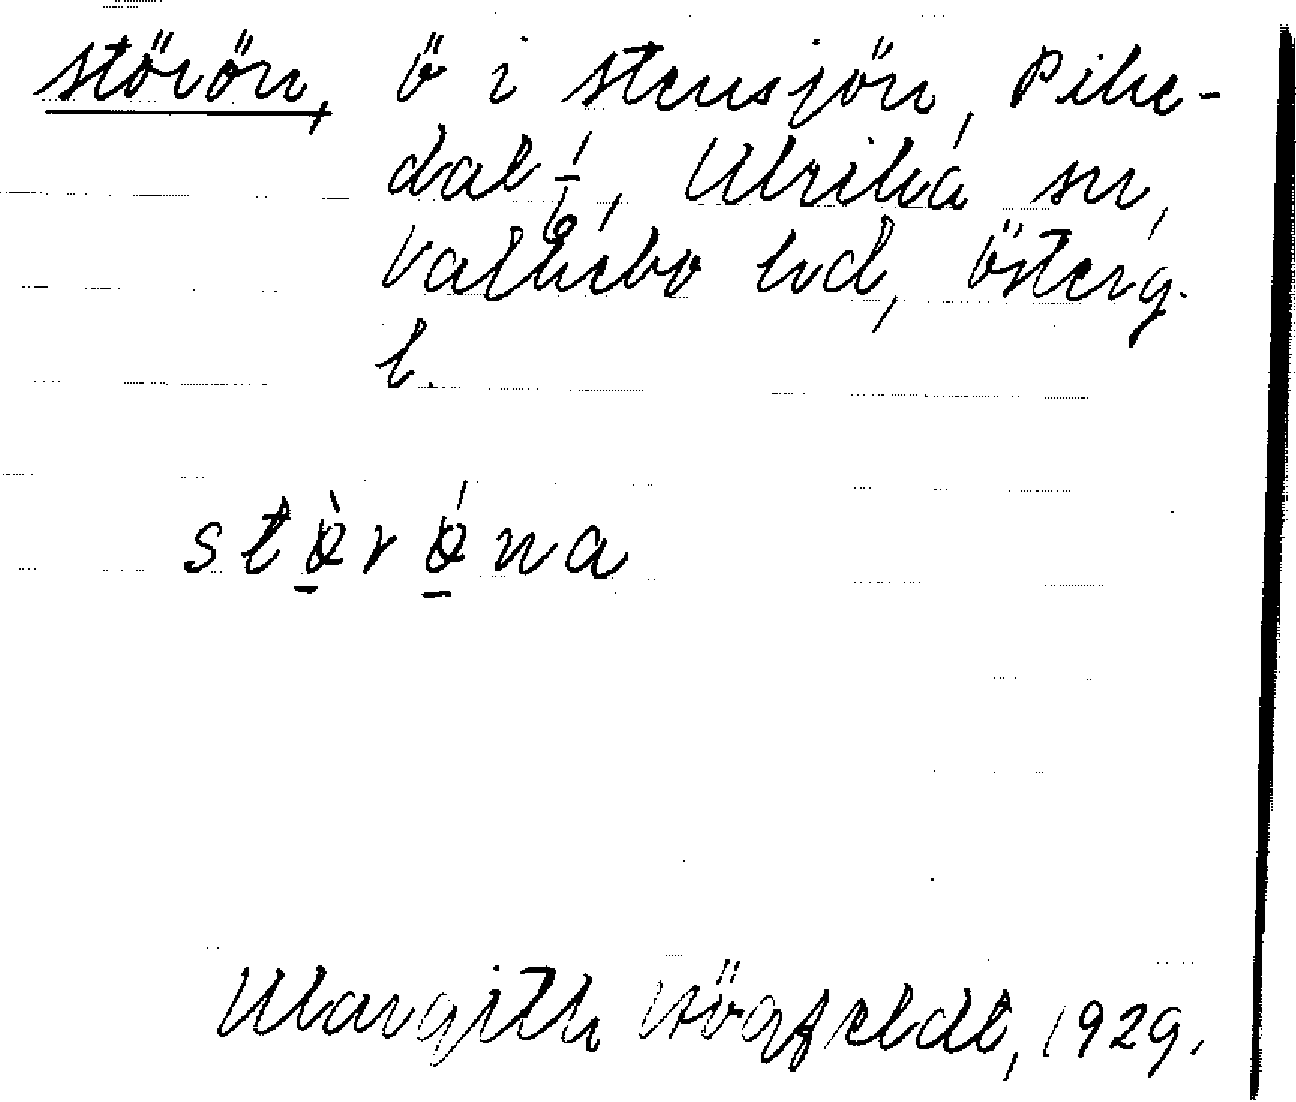 Störön, ö i Stensjön, Pike-
dal 1/1, Ulrika sn,
Valkebo hd, Österg.
l.
stø̀rǿna
Margith Högfeldt, 1929.